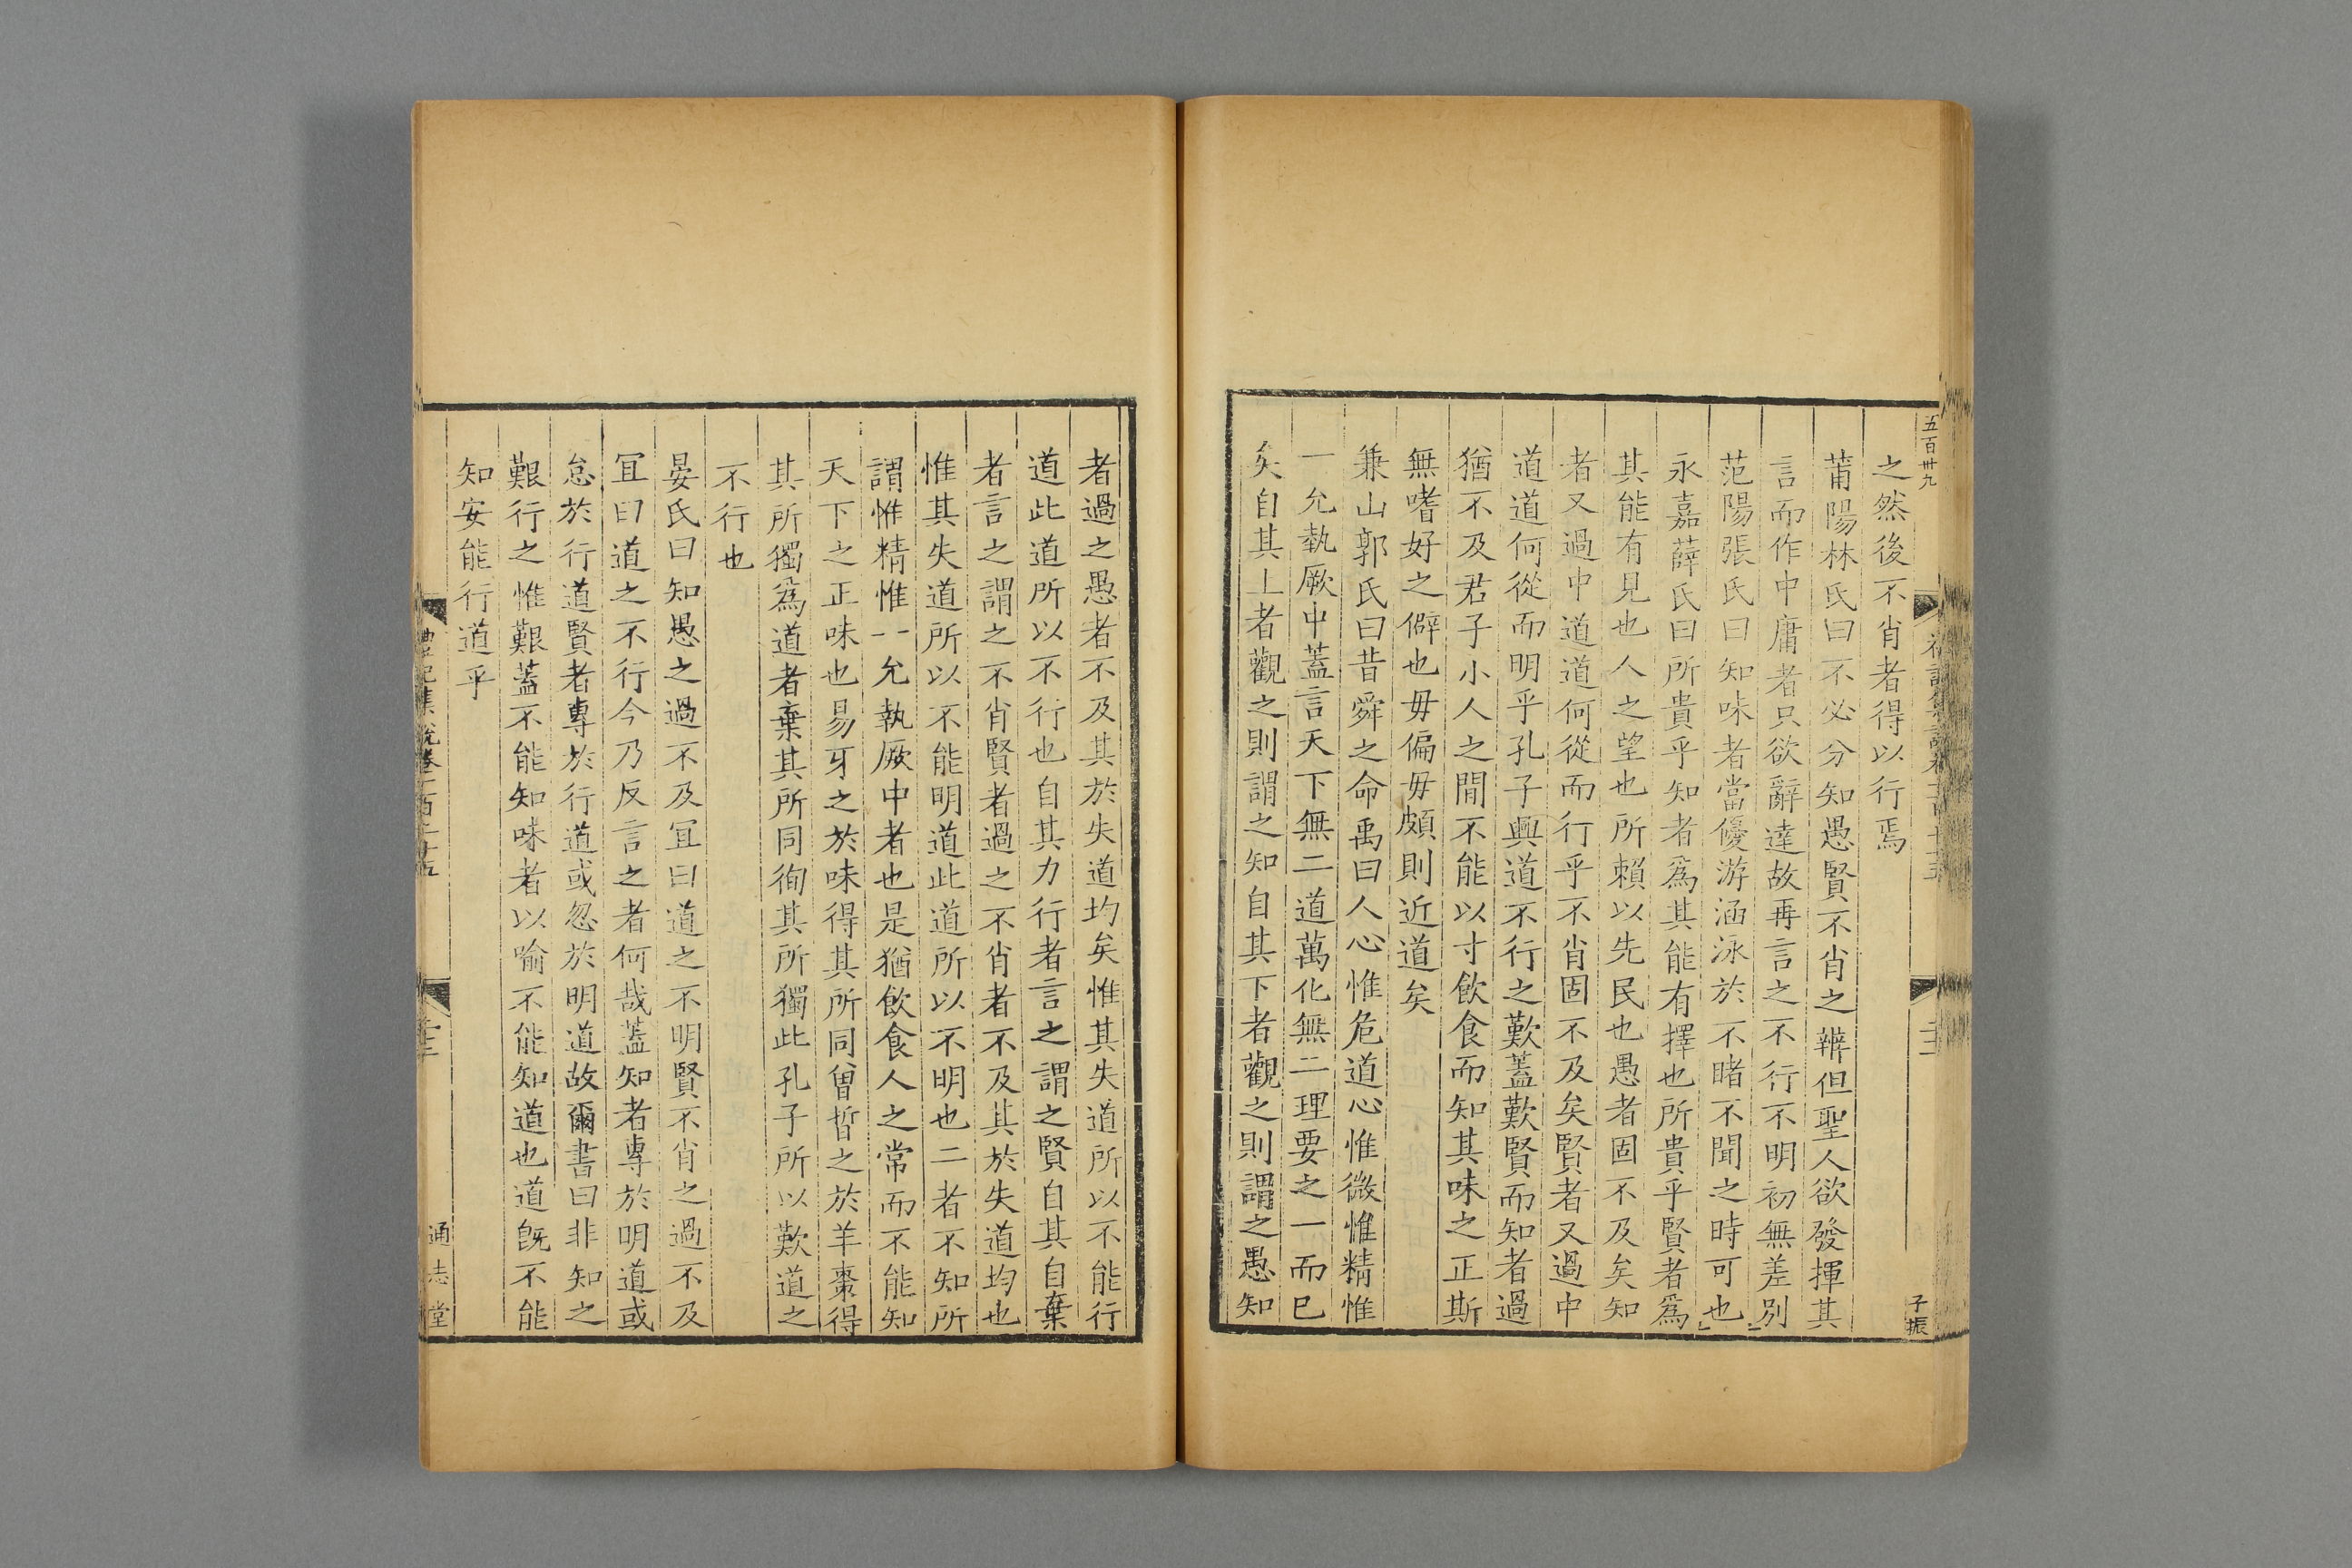 五百卅九
子振
之然後不肖者得以行焉
莆陽林氏曰不必分知愚賢不肖之辨但聖人欲發揮其
言而作中庸者只欲辭達故再言之不行不明初無差別
范陽張氏曰知味者當優游涵泳於不睹不聞之時可也
永嘉薛氏曰所貴乎知者爲其能有擇也所貴乎賢者爲
其能有見也人之望也所賴以先民也愚者固不及矣知
者又過中道道何從而行乎不肖固不及矣賢者又過中
道道何從而明乎孔子興道不行之歎蓋歎賢而知者過
猶不及君子小人之閒不能以寸飲食而知其味之正斯
無嗜好之僻也毋偏毋頗則近道矣
兼山郭氏曰昔舜之命禹曰人心惟危道心惟微惟精惟
一允執厥中蓋言天下無二道萬化無二理要之一而已
矣自其上者觀之則謂之知自其下者觀之則謂之愚知
者過之愚者不及其於失道均矣惟其失道所以不能行
道此道所以不行也自其力行者言之謂之賢自其自棄
者言之謂之不肖賢者過之不肖者不及其於失道均也
惟其失道所以不能明道此道所以不明也二者不知所
謂惟精惟一允執厥中者也是猶飲食人之常而不能知
天下之正味也易牙之於味得其所同曾晳之於羊棗得
其所獨爲道者棄其所同徇其所獨此孔子所以歎道之
不行也
晏氏曰知愚之過不及宜曰道之不明賢不肖之過不及
宜曰道之不行今乃反言之者何哉蓋知者專於明道或
怠於行道賢者專於行道或忽於明道故爾書曰非知之
艱行之惟艱蓋不能知味者以喻不能知道也道旣不能
知安能行道乎
禮記集說卷一百二十五
通志堂